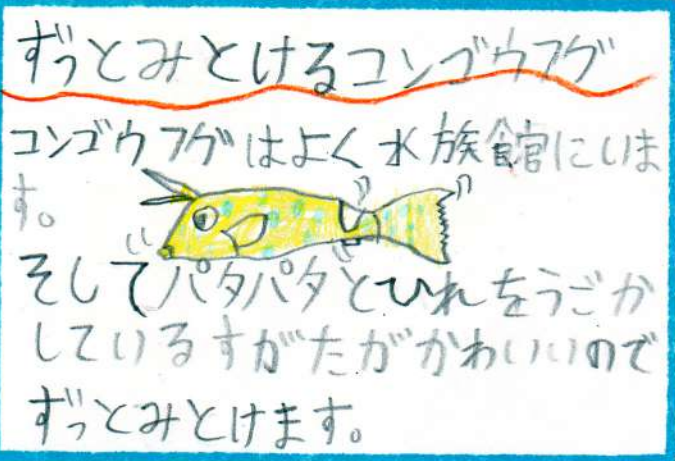 ずっとみとけるコンゴウフグ
コンゴウフグはよく水族館にいま
す。
そしてパタパタとひれをうごか
しているすがたがかわいいので
ずっとみとけます。